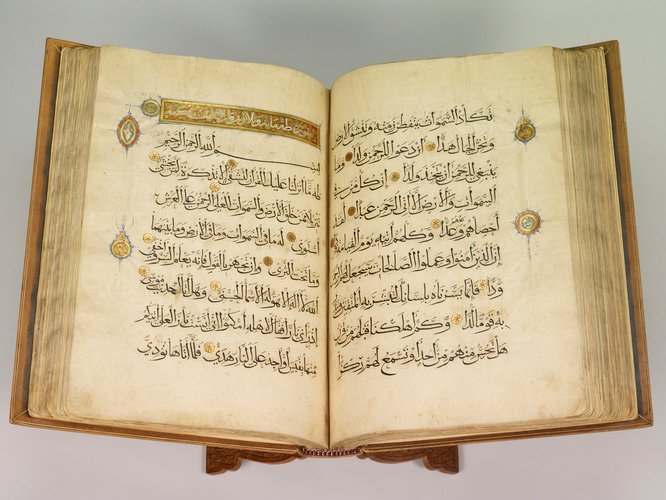 تكاد السموات يتفطرن منه وتنشق الأرض
وتخر الجبال هدا أن دعوا للرحمن ولدا وما
ينبغي للرحمن أن يتخذ ولدا إن كل من في
السموات والأرض إلا آتي الرحمن عبدا لقد
أحصاهم وعدهم عدا وكلهم آتيه يوم القيامة
إن الذين آمنوا وعملوا الصالحات سيجعل لهم الرحمن
ودا فإنما يسرناه بلسانك لتبشر به المتقين وتنذر
به قوما لدا وكم أهلكنا قبلهم من قرن
هل تحس منهم من أحد أو تسمع لهم ركزا
سورة طه مائة وثلاثون
بسم الله الرحمن الرحيم
طه ما أنزلنا عليك القرآن لتشقى إلا تذكرة لمن يخشى
تنزيلا ممن خلق الأرض والسموات العلى الرحمن على العرش
استوى له ما في السموات وما في الأرض وما بينهما
وما تحت الثرى وإن تجهر بالقول فإنه يعلم السر وأخفى
الله لا إله إلا هو له الأسماء الحسنى وهل أتاك حديث موسى
إذ رأى نارا فقال لأهله امكثوا إني آنست نارا لعلي آتيكم
منها بقبس أو أجد على النار هدى فلما أتاها نودي